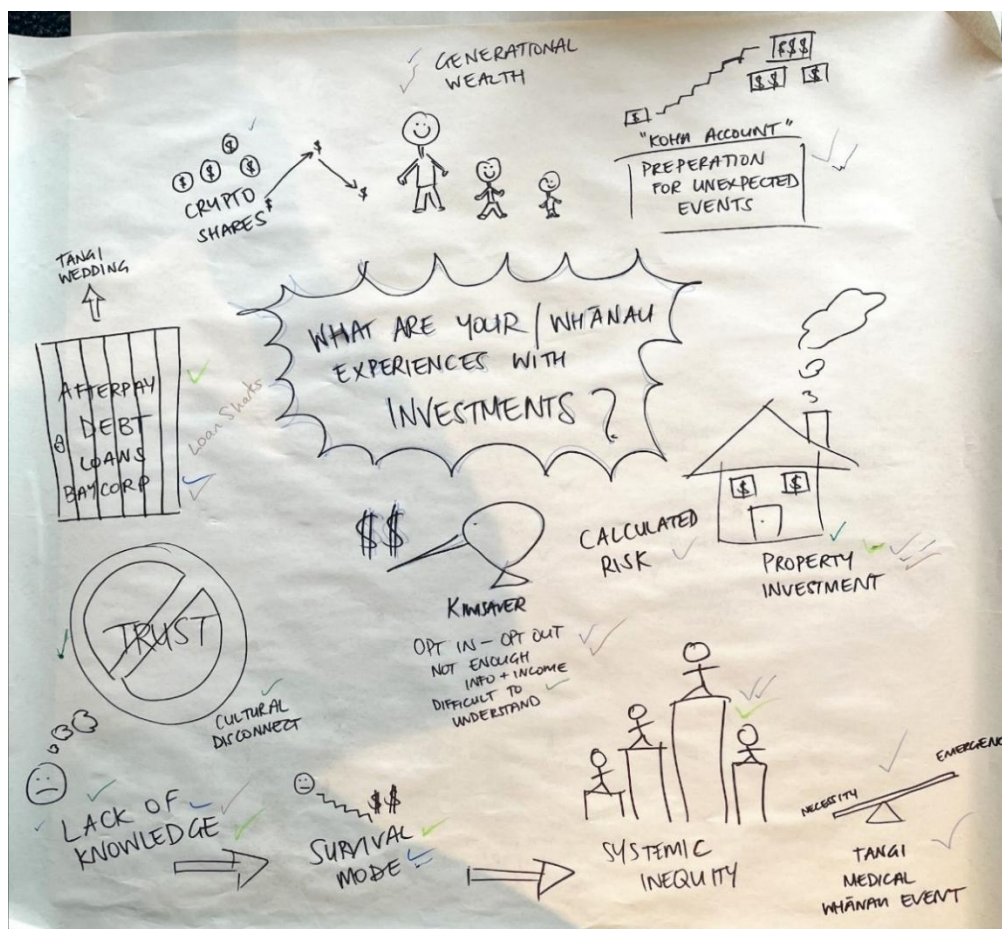 GENERATIONAL
WEALTH
$$$
$$
$
$
"KOHA ACCOUNT"
PREPERATION
FOR UNEXPECTED
EVENTS
$
$
$
$
$
CRYPTO
SHARES
$
$
$
TANGI
WEDDING
AFTERPAY
DEBT
LOANS
BAYCORP
Loan Sharks
WHAT ARE YOUR / WHĀNAU
EXPERIENCES WITH
INVESTMENTS ?
$$
KIWISAVER
OPT IN - OPT OUT
NOT ENOUGH
INFO + INCOME
DIFFICULT TO
UNDERSTAND
CALCULATED
RISK
$
$
PROPERTY
INVESTMENT
TRUST
CULTURAL
DISCONNECT
LACK OF
KNOWLEDGE
$$
SURVIVAL
MODE
SYSTEMIC
INEQUITY
NECESSITY
EMERGENC
TANGI
MEDICAL
WHĀNAU EVENT